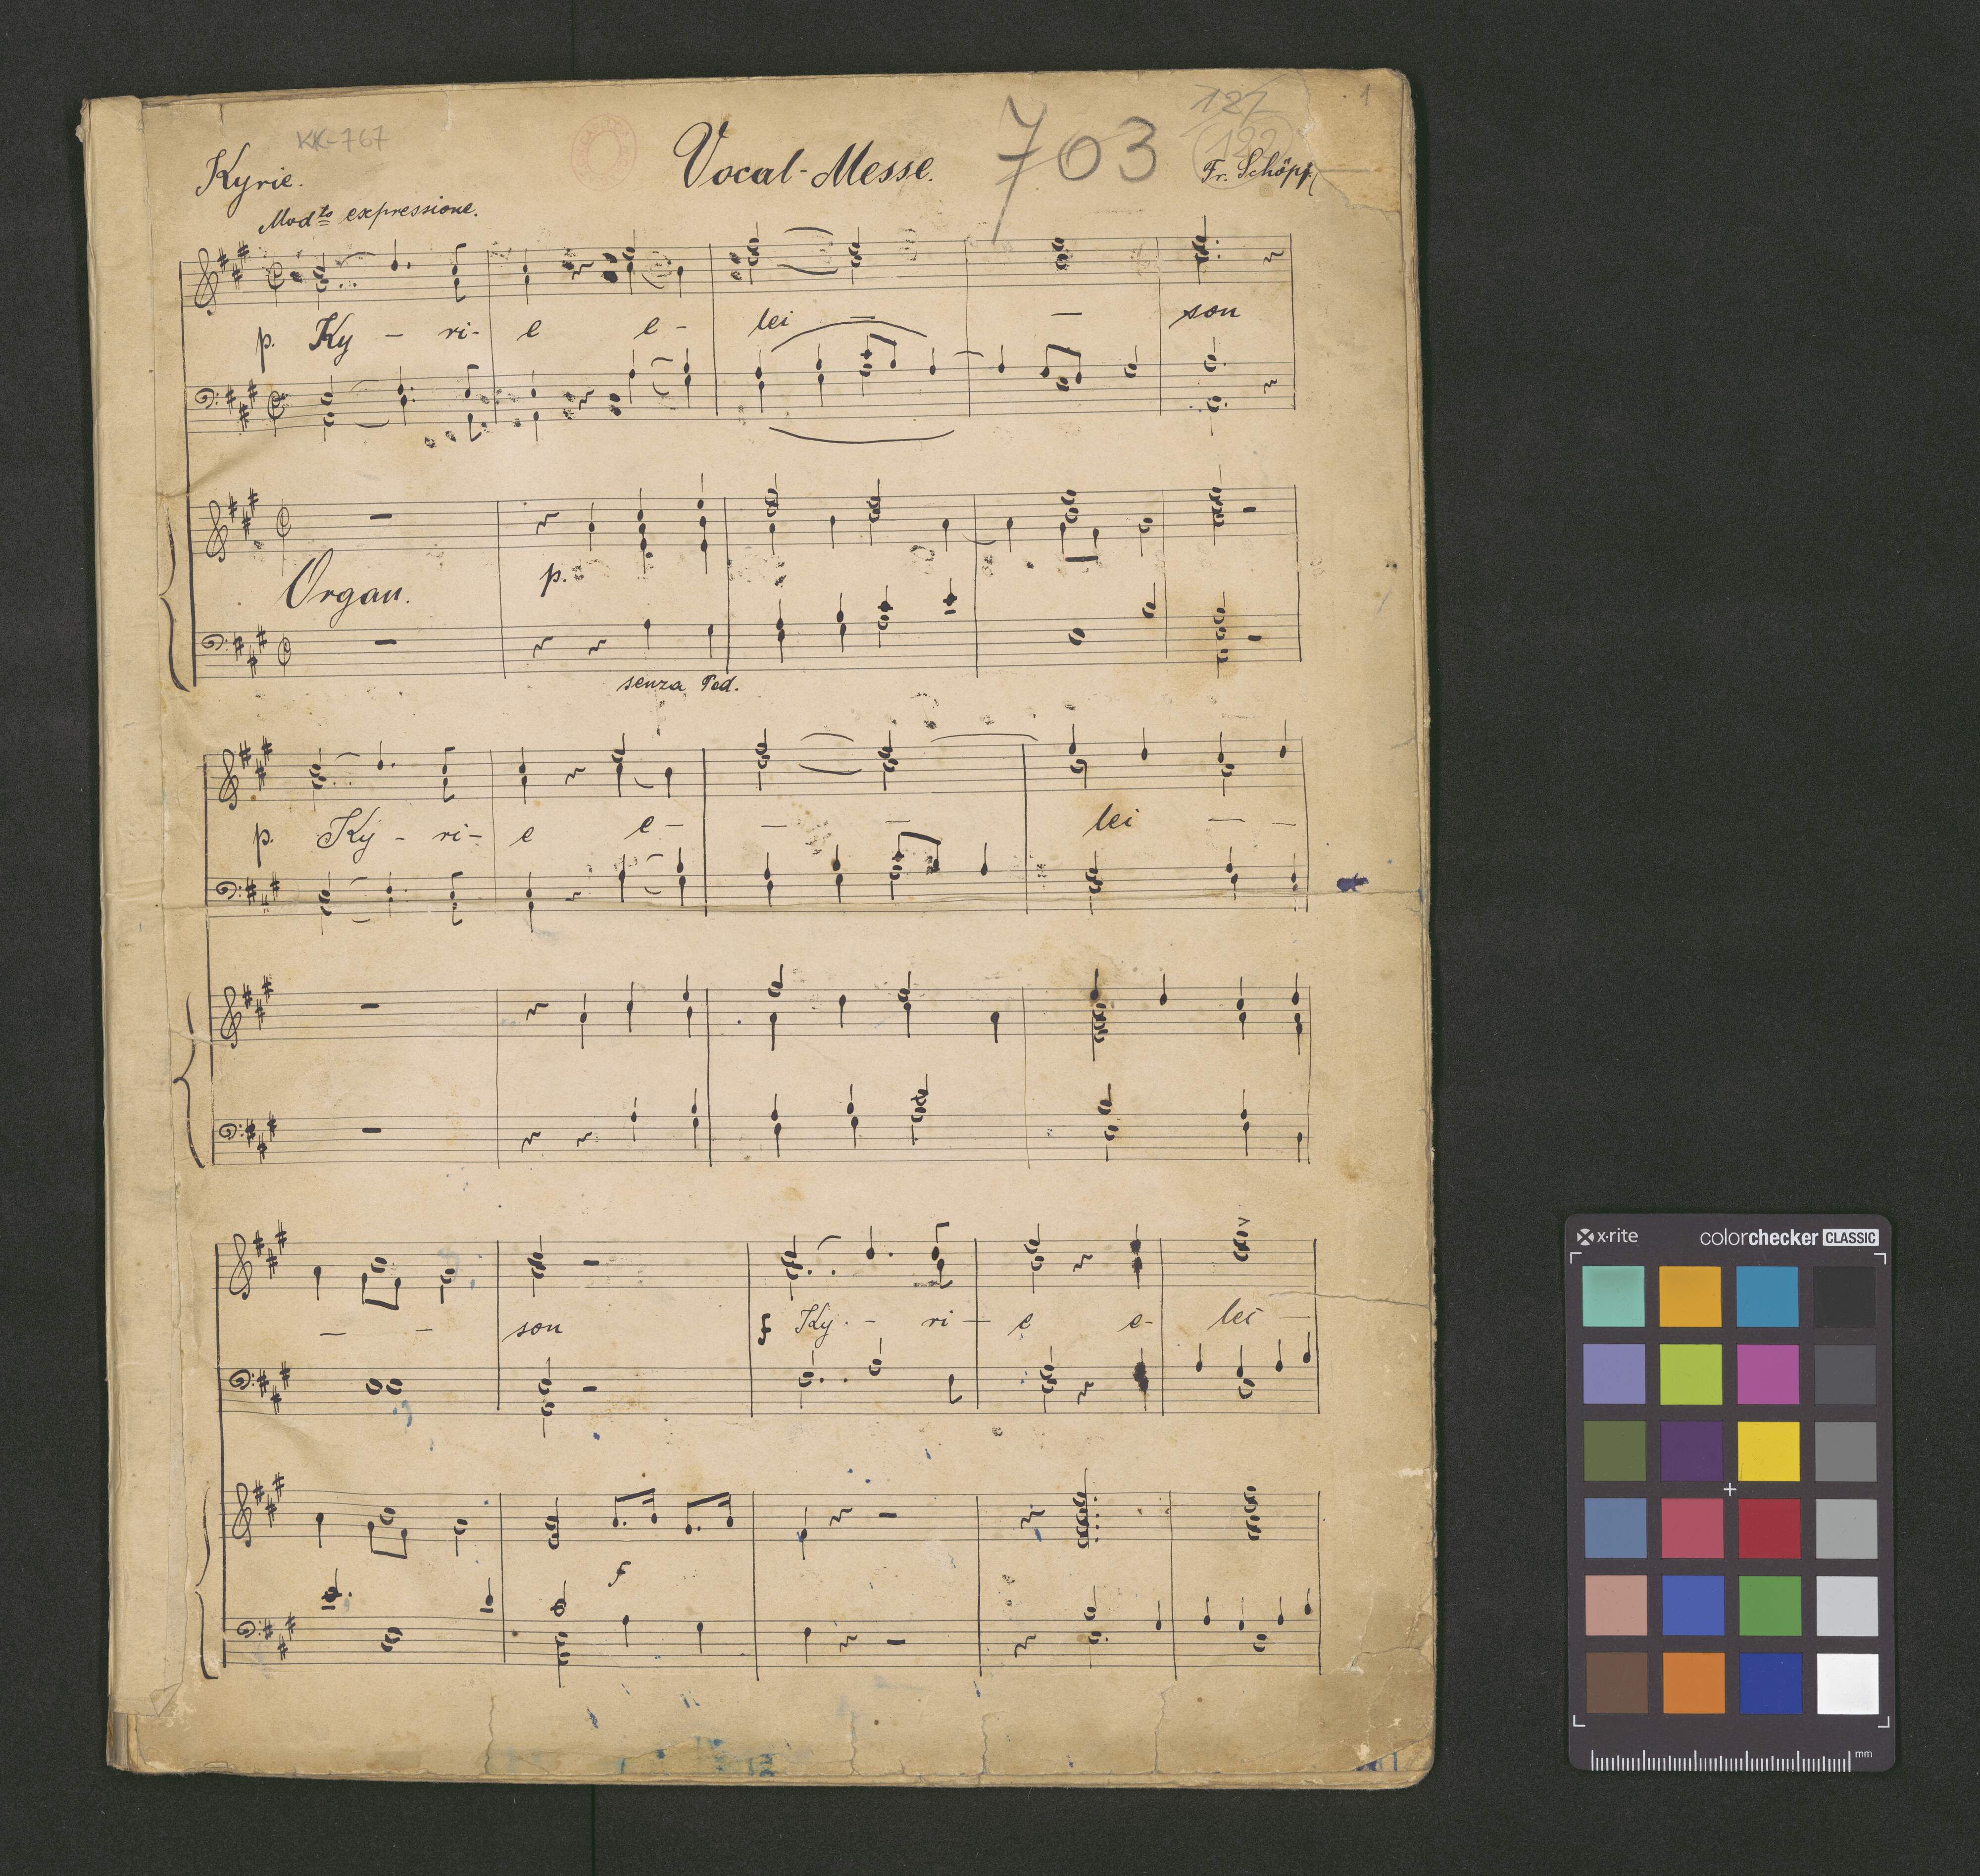 127
1
KK-767
703
122
Kyrie.
Vocal-Messe.
Fr. Schöpf
Mod.to expressione.
p. Ky - ri- e e - lei — — son
Organ.
p.
senza Ped.
p. Ky - ri- e e - — — lei — —
— — son f Ky - - ri - e e- lei —
f
x-rite colorchecker CLASSIC
mm